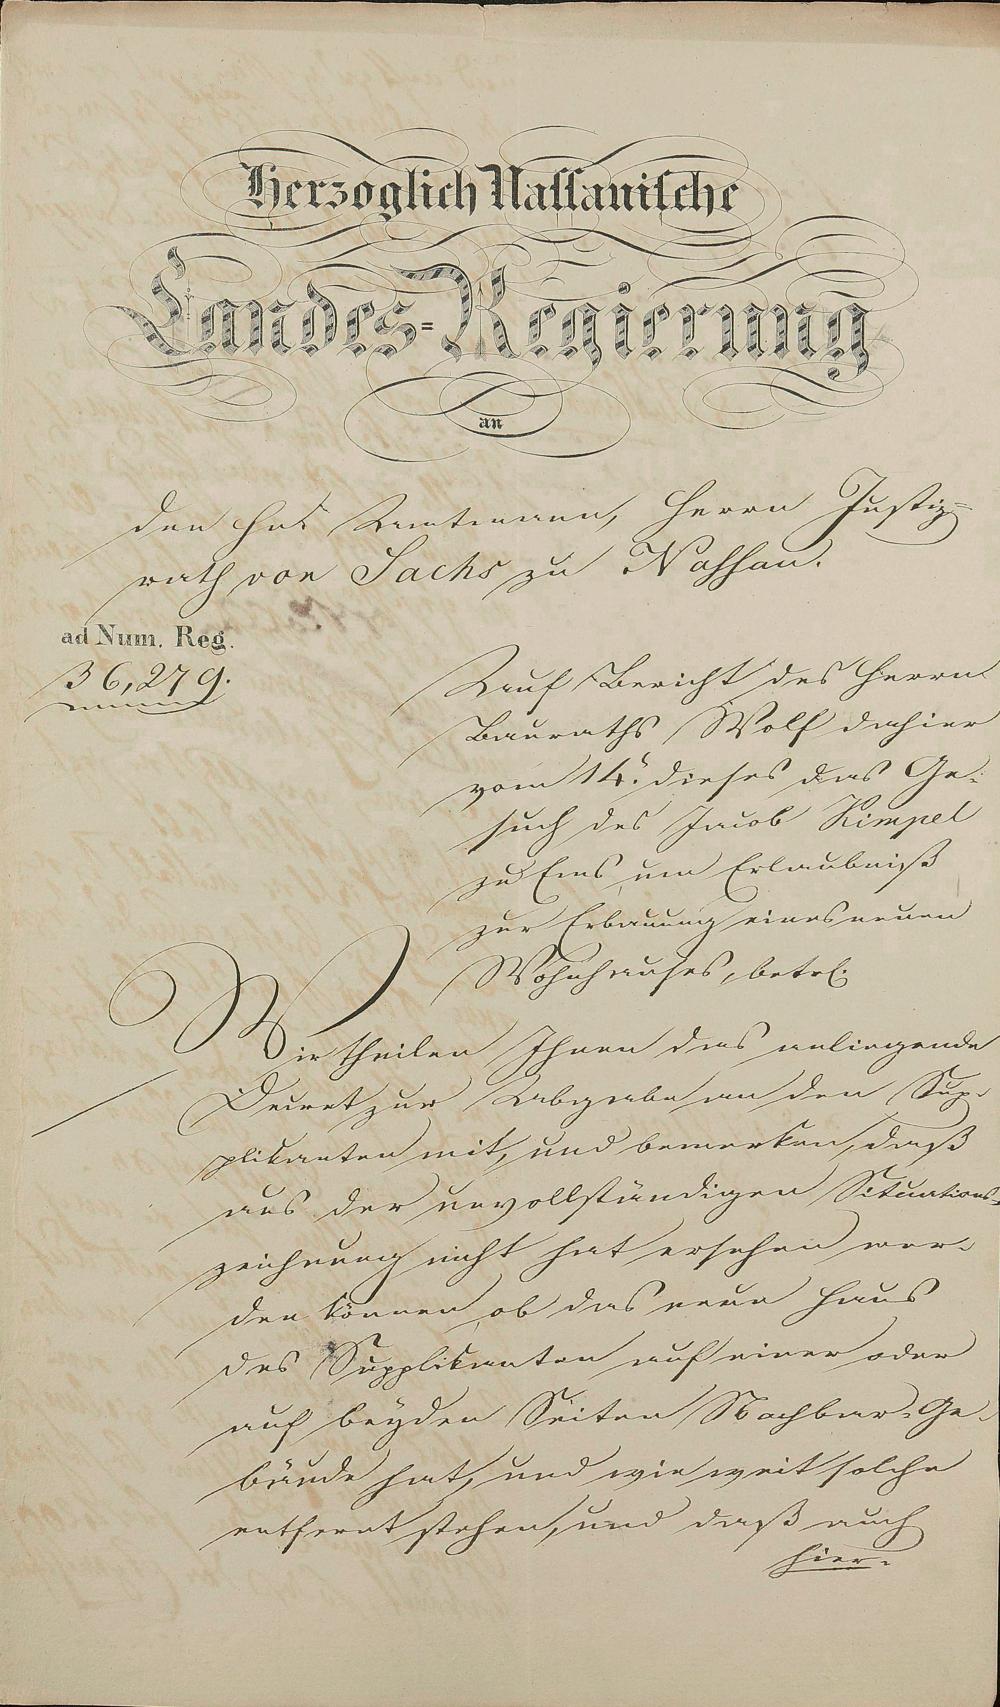 Herzoglich Nassauische
Landes=Regierung
an
den Amtmann, Herrn Justiz=
rath von Sachs zu Nassau.
ad Num. Reg.
36,279.
Auf Bericht des Herrn
Bauraths Wolf dahier
vom 14. dieses das Ge=
such des Jacob Rimpel
zu Ems um Erlaubniß
zur Erbauung eines neuen
Wohnhauses, betr.
Wir theilen Ihnen das anliegende
Decret zur Abgabe an den Sup=
plikanten mit, und bemerken, daß
aus der unvollständigen Situations=
zeichnung nicht hat ersehen wer=
den können, ob das neue Haus
des Supplikanten auf einer oder
auf beyden Seiten Nachbar=Ge=
bäude hat, und wie weit solche
entfernt stehen, und daß auch
hier=